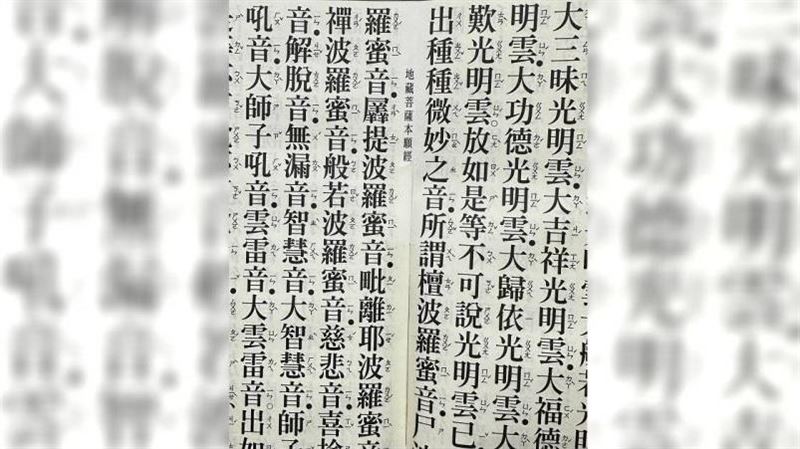 大三昧光明雲大吉祥光明雲大福德
明雲大功德光明雲大歸依光明雲大
歎光明雲放如是等不可說光明雲已
出種種微妙之音所謂檀波羅蜜音尸
地藏菩薩本願經
羅蜜音羼提波羅蜜音毗離耶波羅蜜音
禪波羅蜜音般若波羅蜜音慈悲音喜捨
音解脫音無漏音智慧音大智慧音師子
吼音大師子吼音雲雷音大雲雷音出如